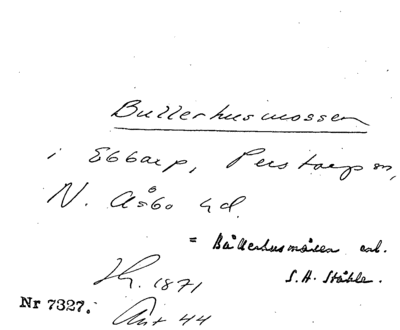 Bullerhusmossen
i Ebbarp, Perstorp sn,
N. Åsbo hd.
= Bållerhusmåsen enl.
S. A. Ståhle.
1871
Nr 7327. Ant 44